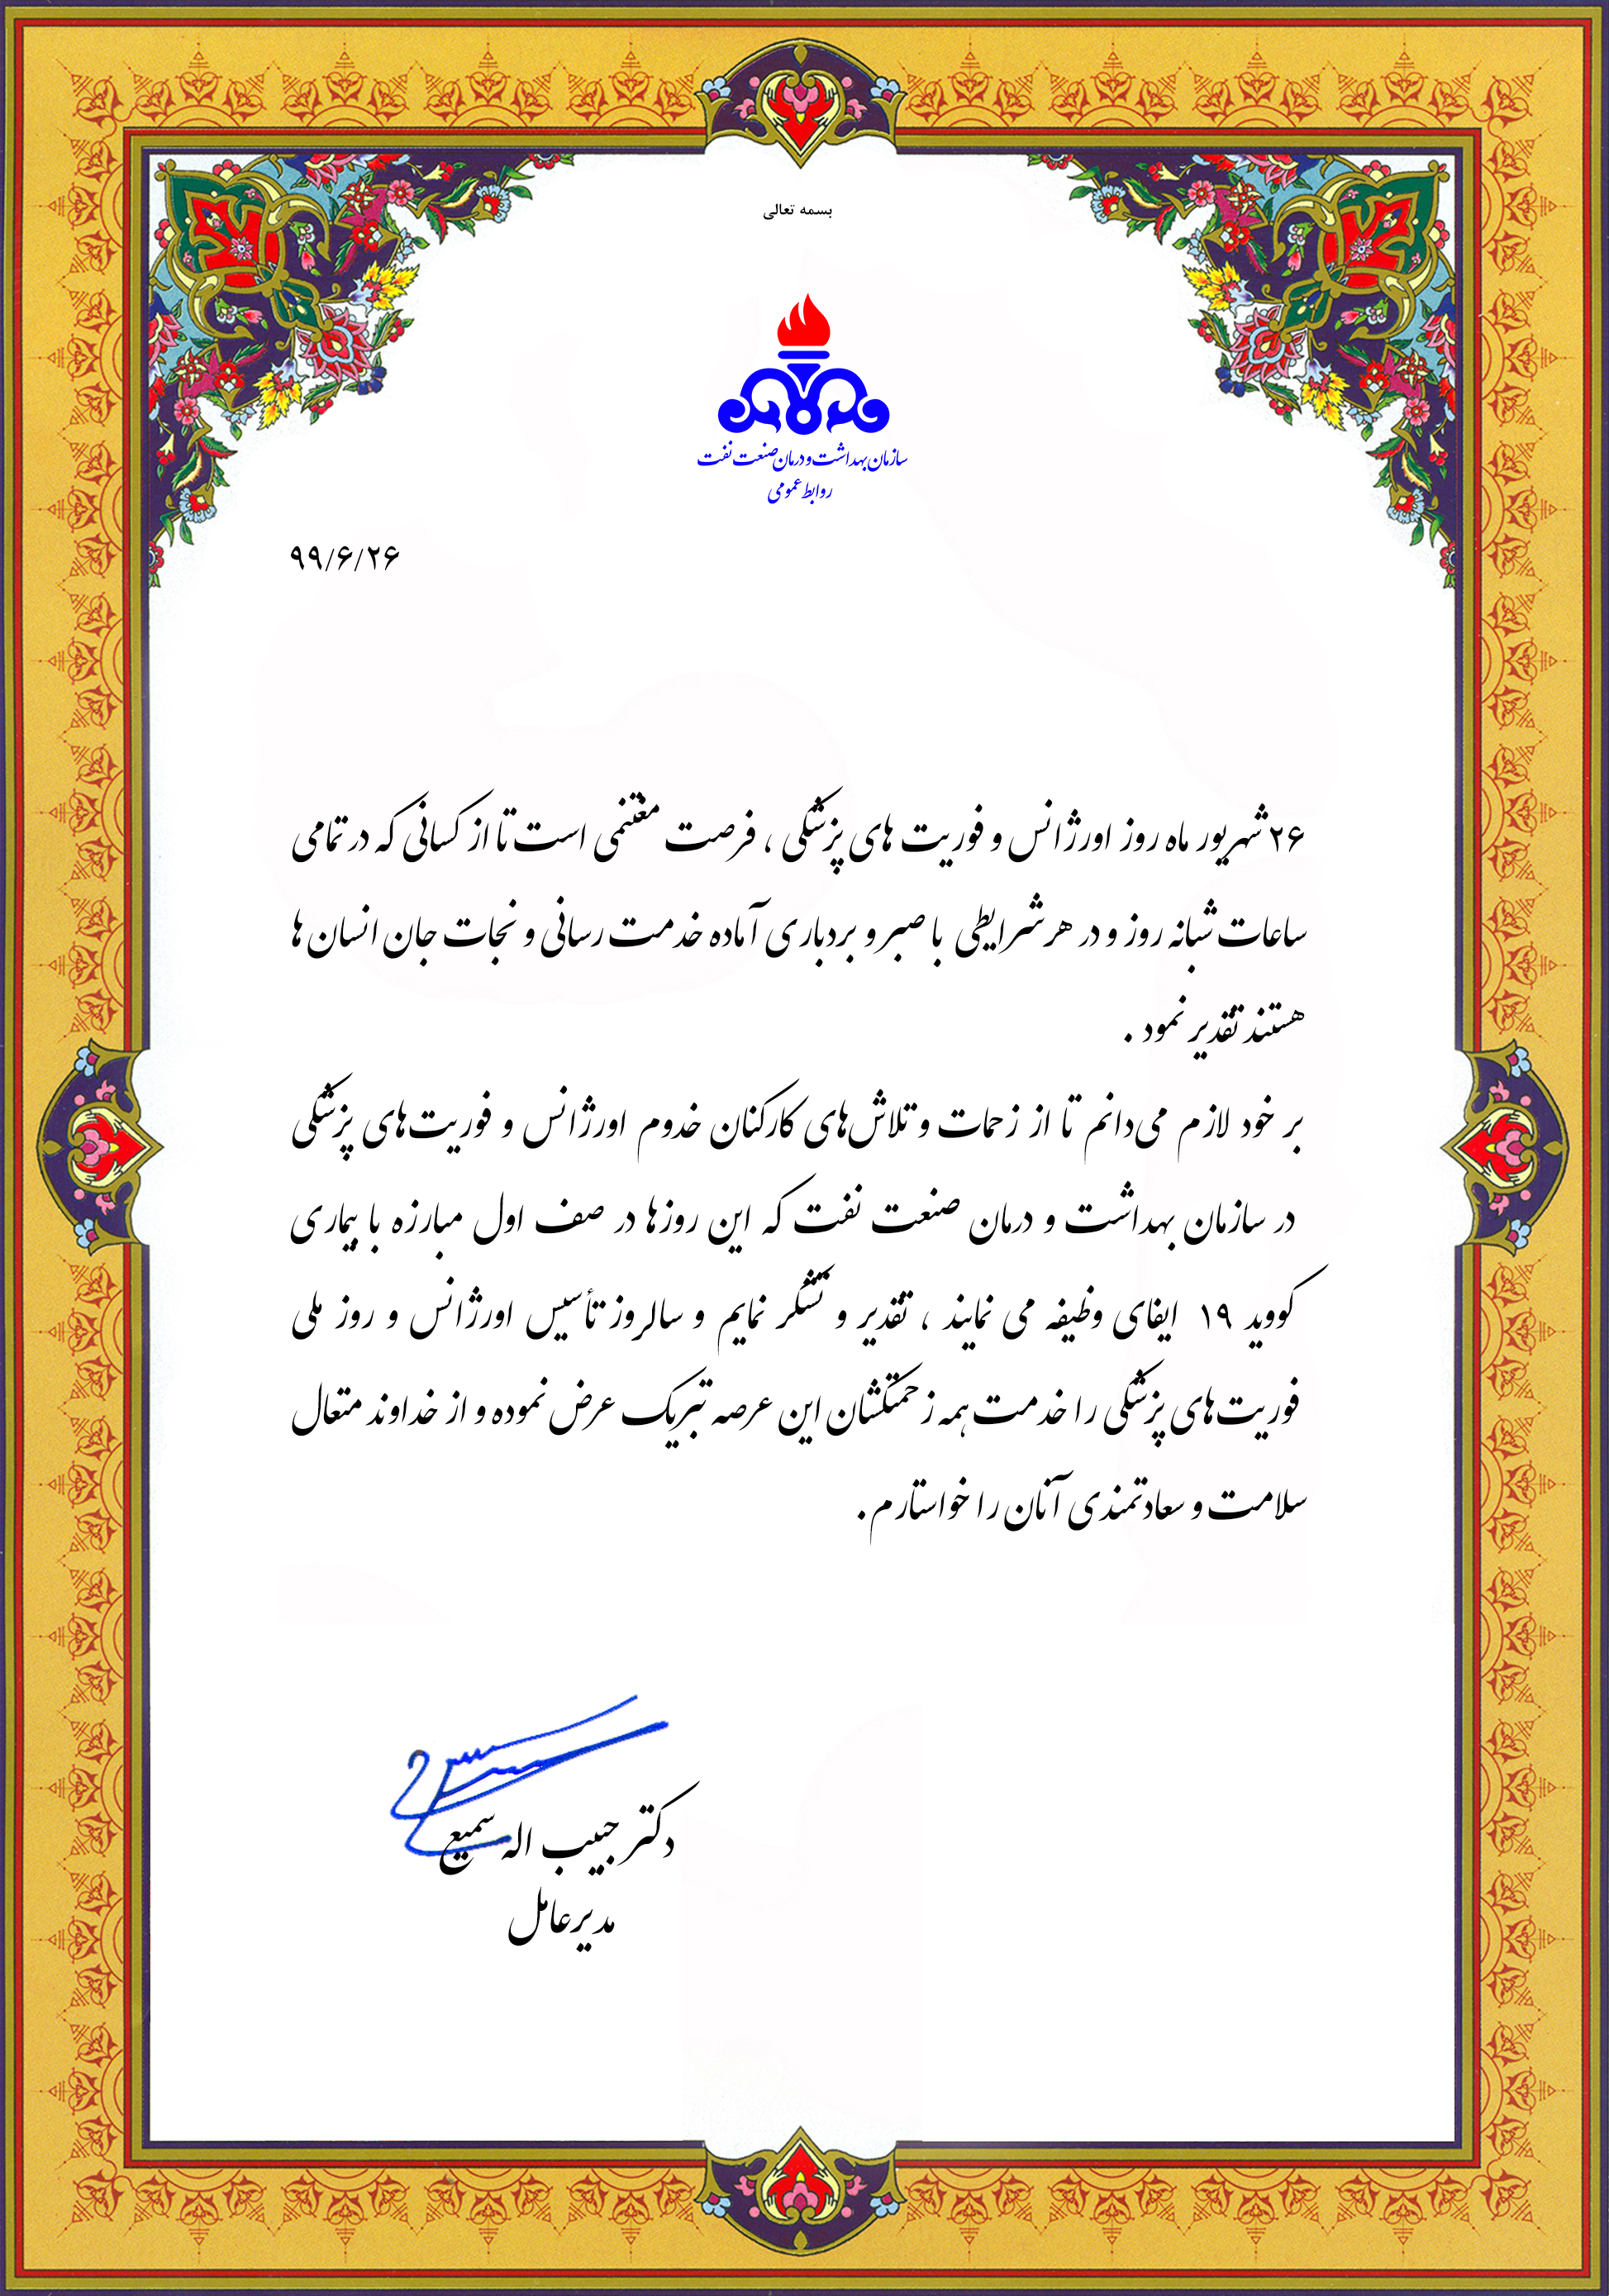 بسمه تعالی
سازمان بهداشت و درمان صنعت نفت
روابط عمومی
۹۹/۶/۲۶
۲۶ شهریور ماه روز اورژانس و فوریت های پزشکی ، فرصت مغتنمی است تا از کسانی که در تمامی
ساعات شبانه روز و در هر شرایطی با صبر و بردباری آماده خدمت رسانی و نجات جان انسان ها
هستند تقدیر نمود .
بر خود لازم می‌دانم تا از زحمات و تلاش‌های کارکنان خدوم اورژانس و فوریت‌های پزشکی
در سازمان بهداشت و درمان صنعت نفت که این روزها در صف اول مبارزه با بیماری
کووید ۱۹ ایفای وظیفه می نمایند ، تقدیر و تشکر نمایم و سالروز تأسیس اورژانس و روز ملی
فوریت‌های پزشکی را خدمت همه زحمتکشان این عرصه تبریک عرض نموده و از خداوند متعال
سلامت و سعادتمندی آنان را خواستارم.
دکتر حبیب اله سمیع
مدیرعامل